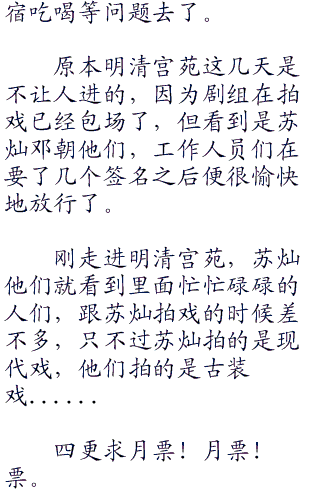 宿吃喝等问题去了。
原本明清宫苑这几天是
不让人进的，因为剧组在拍
戏已经包场了，但看到是苏
灿邓朝他们，工作人员们在
要了几个签名之后便很愉快
地放行了。
刚走进明清宫苑，苏灿
他们就看到里面忙忙碌碌的
人们，跟苏灿拍戏的时候差
不多，只不过苏灿拍的是现
代戏，他们拍的是古装
戏......
四更求月票！月票！
票。